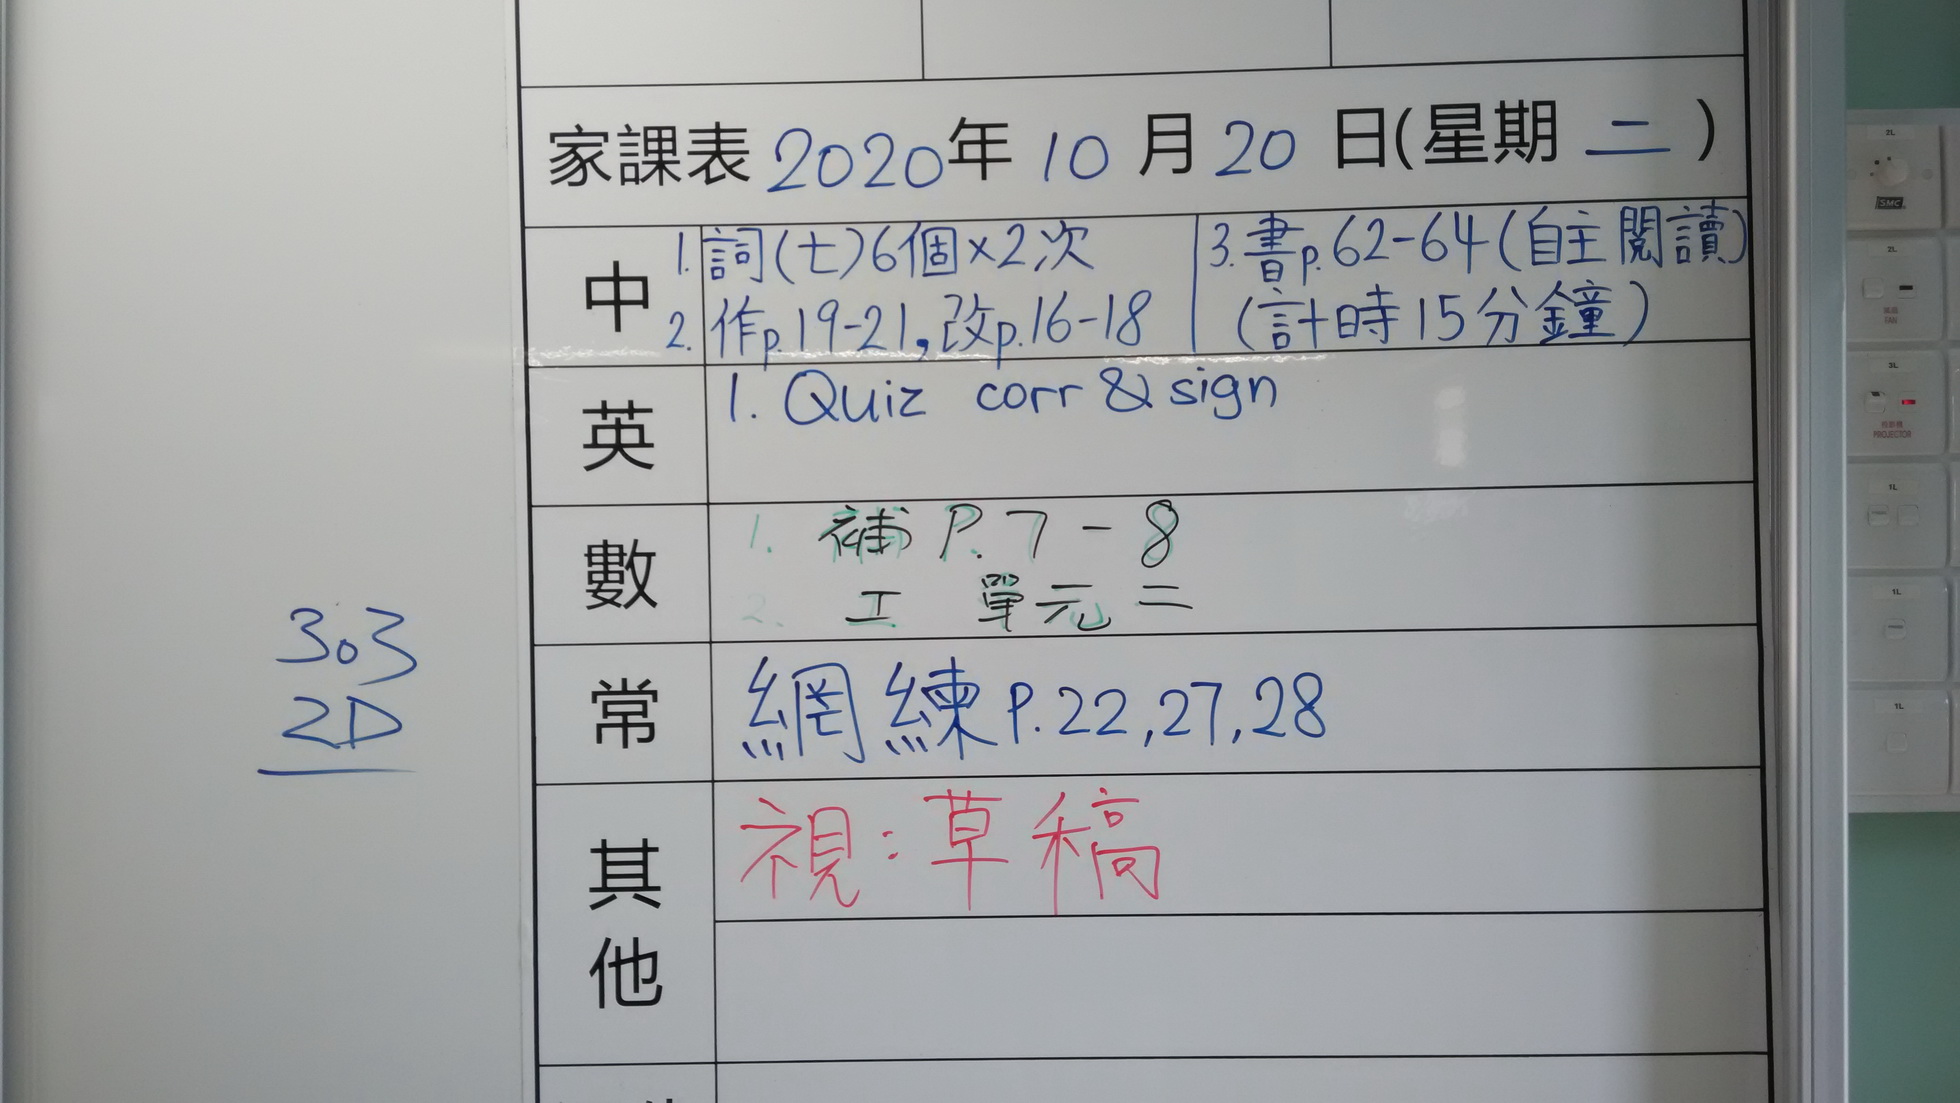 家課表 2020年 10 月 20 日(星期 二 )
中
1. 詞(七)6個×2次
2. 作p.19-21,改p.16-18
3. 書p.62-64(自主閱讀)
(計時15分鐘)
英
1. Quiz corr & sign
數
1. 補 P. 7 - 8
2. 工 單元二
常
網練 P.22,27,28
其他
視:草稿
303
2D
2L
SMC
2L
FAN
3L
PROJECTOR
1L
1L
1L